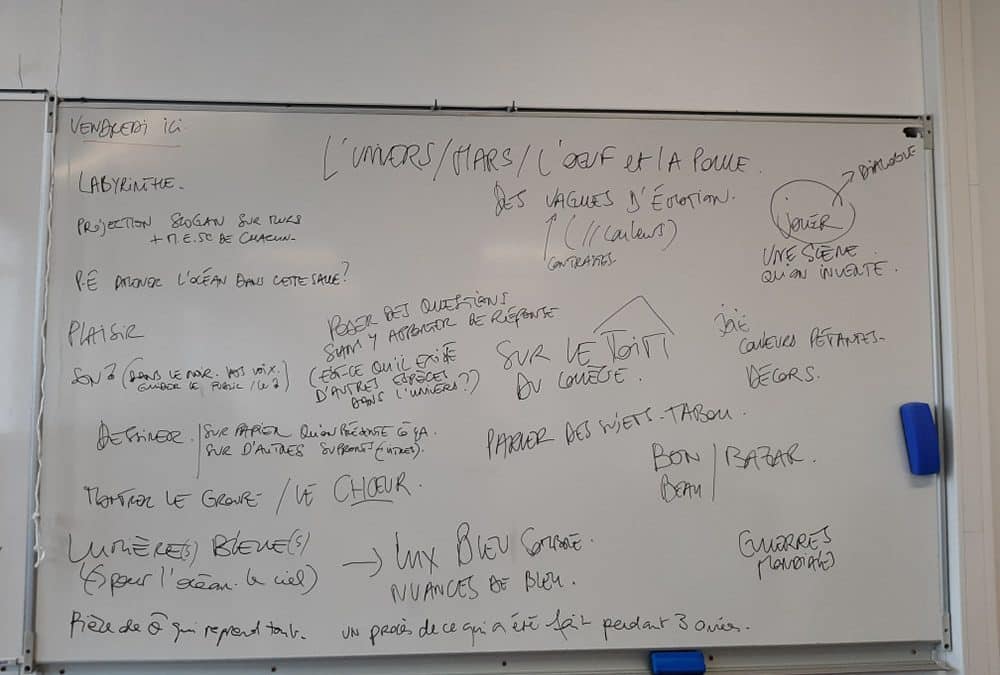 VENDREDI ICI
L'UNIVERS/MARS/L'OEUF et LA POULE.
LABYRINTHE.
DES VAGUES D'ÉMOTION.
(// couleurs)
CONTRASTES
JOUER
DIALOGUE
UNE SCÈNE
QU'ON INVENTE.
PROJECTION SLOGAN SUR MURS
+ M.E.SC DE CHACUN.
P.E AMENER L'OCÉAN DANS CETTE SALLE?
PLAISIR
SON? (DANS LE NOIR. VOS VOIX.
GUIDER LE PUBLIC
POSER DES QUESTIONS
SANS Y APPORTER DE RÉPONSE
(EST-CE QU'IL EXISTE
D'AUTRES ESPÈCES
DANS L'UNIVERS?)
SUR LE TOIT
DU COLLÈGE.
JOIE
COULEURS PÉTANTES.
DÉCORS.
DESSINER. SUR PAPIER QU'ON PRÉSENTE
SUR D'AUTRES SUPPORTS (AUTRES).
PARLER DES SUJETS-TABOU.
BON / BAZAR.
BEAU
MONTRER LE GROUPE / LE CHOEUR.
LUMIÈRE(S) BLEUE(S)
(pour l'océan. le ciel)
→ LUX BLEU SOMBRE.
NUANCES DE BLEU.
GUERRES
MONDIALES
Pièce de qui reprend tout. UN procès de ce qui a été fait pendant 3 années.